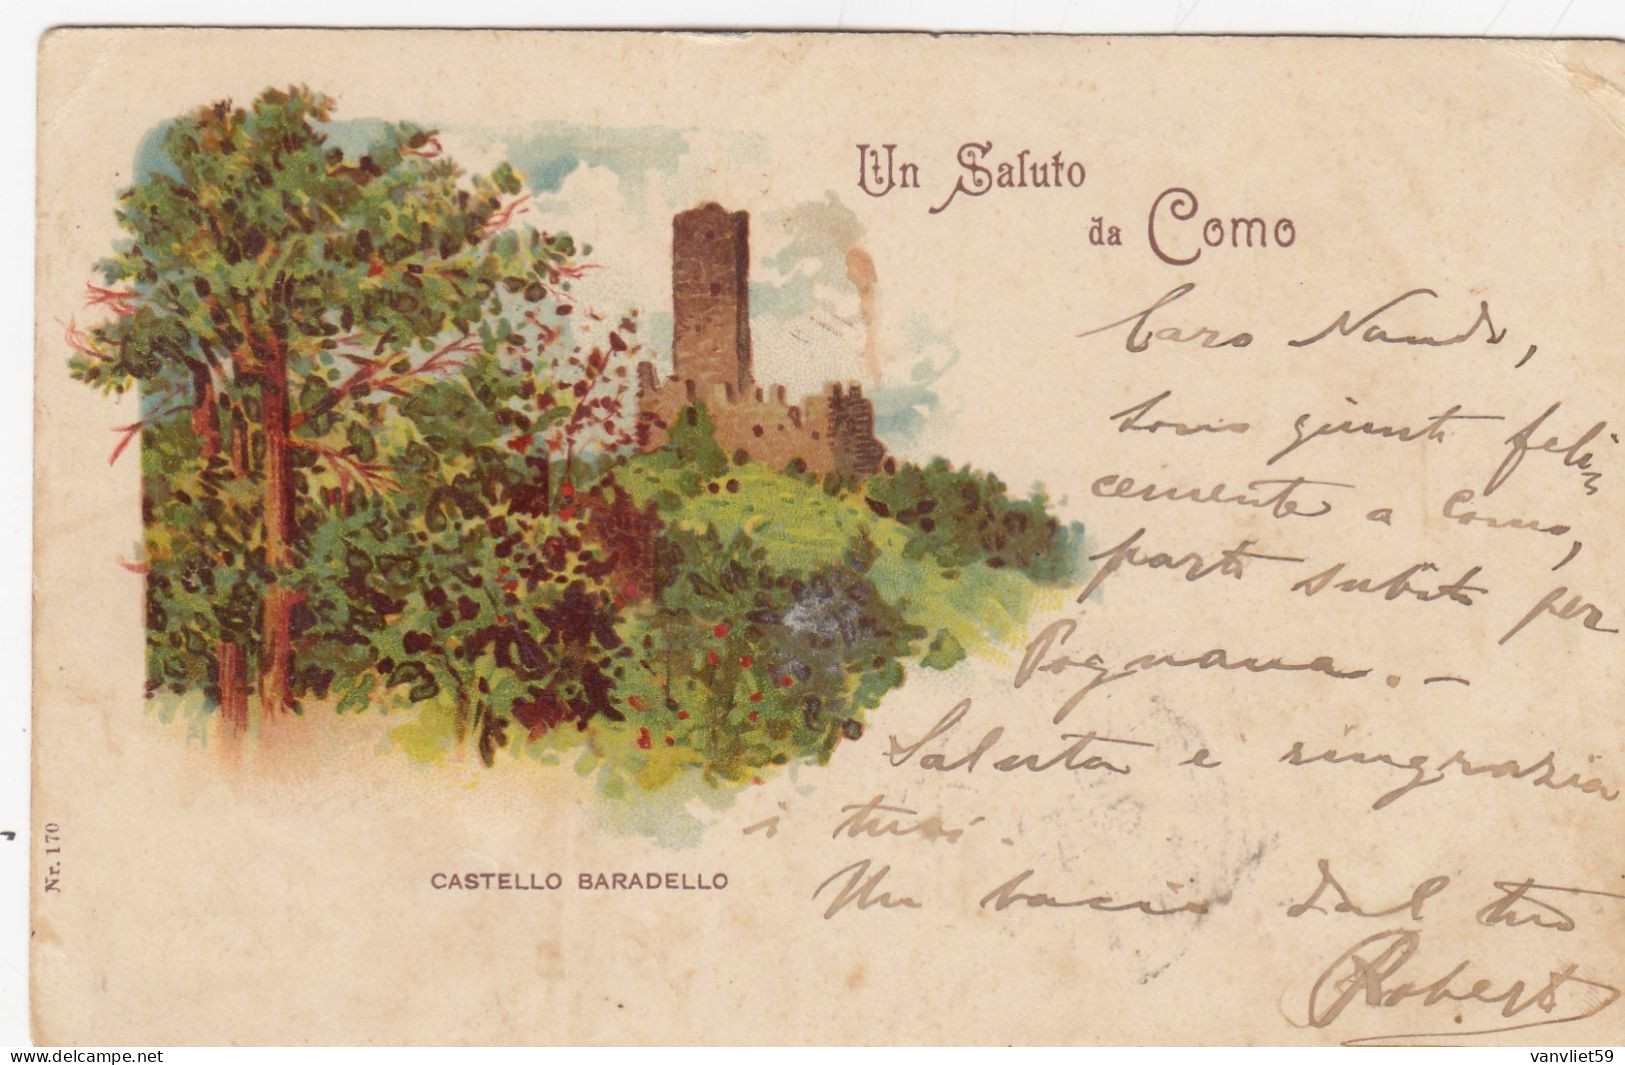 Un Saluto
da Como
Caro Nando,
sono giunto feli=
cemente a Como,
parto subito per
Pognana. -
Saluta e ringrazia
i tuoi.
Un bacio dal tuo
Roberto
CASTELLO BARADELLO
Nr. 170
delcampe.net
vanvliet59